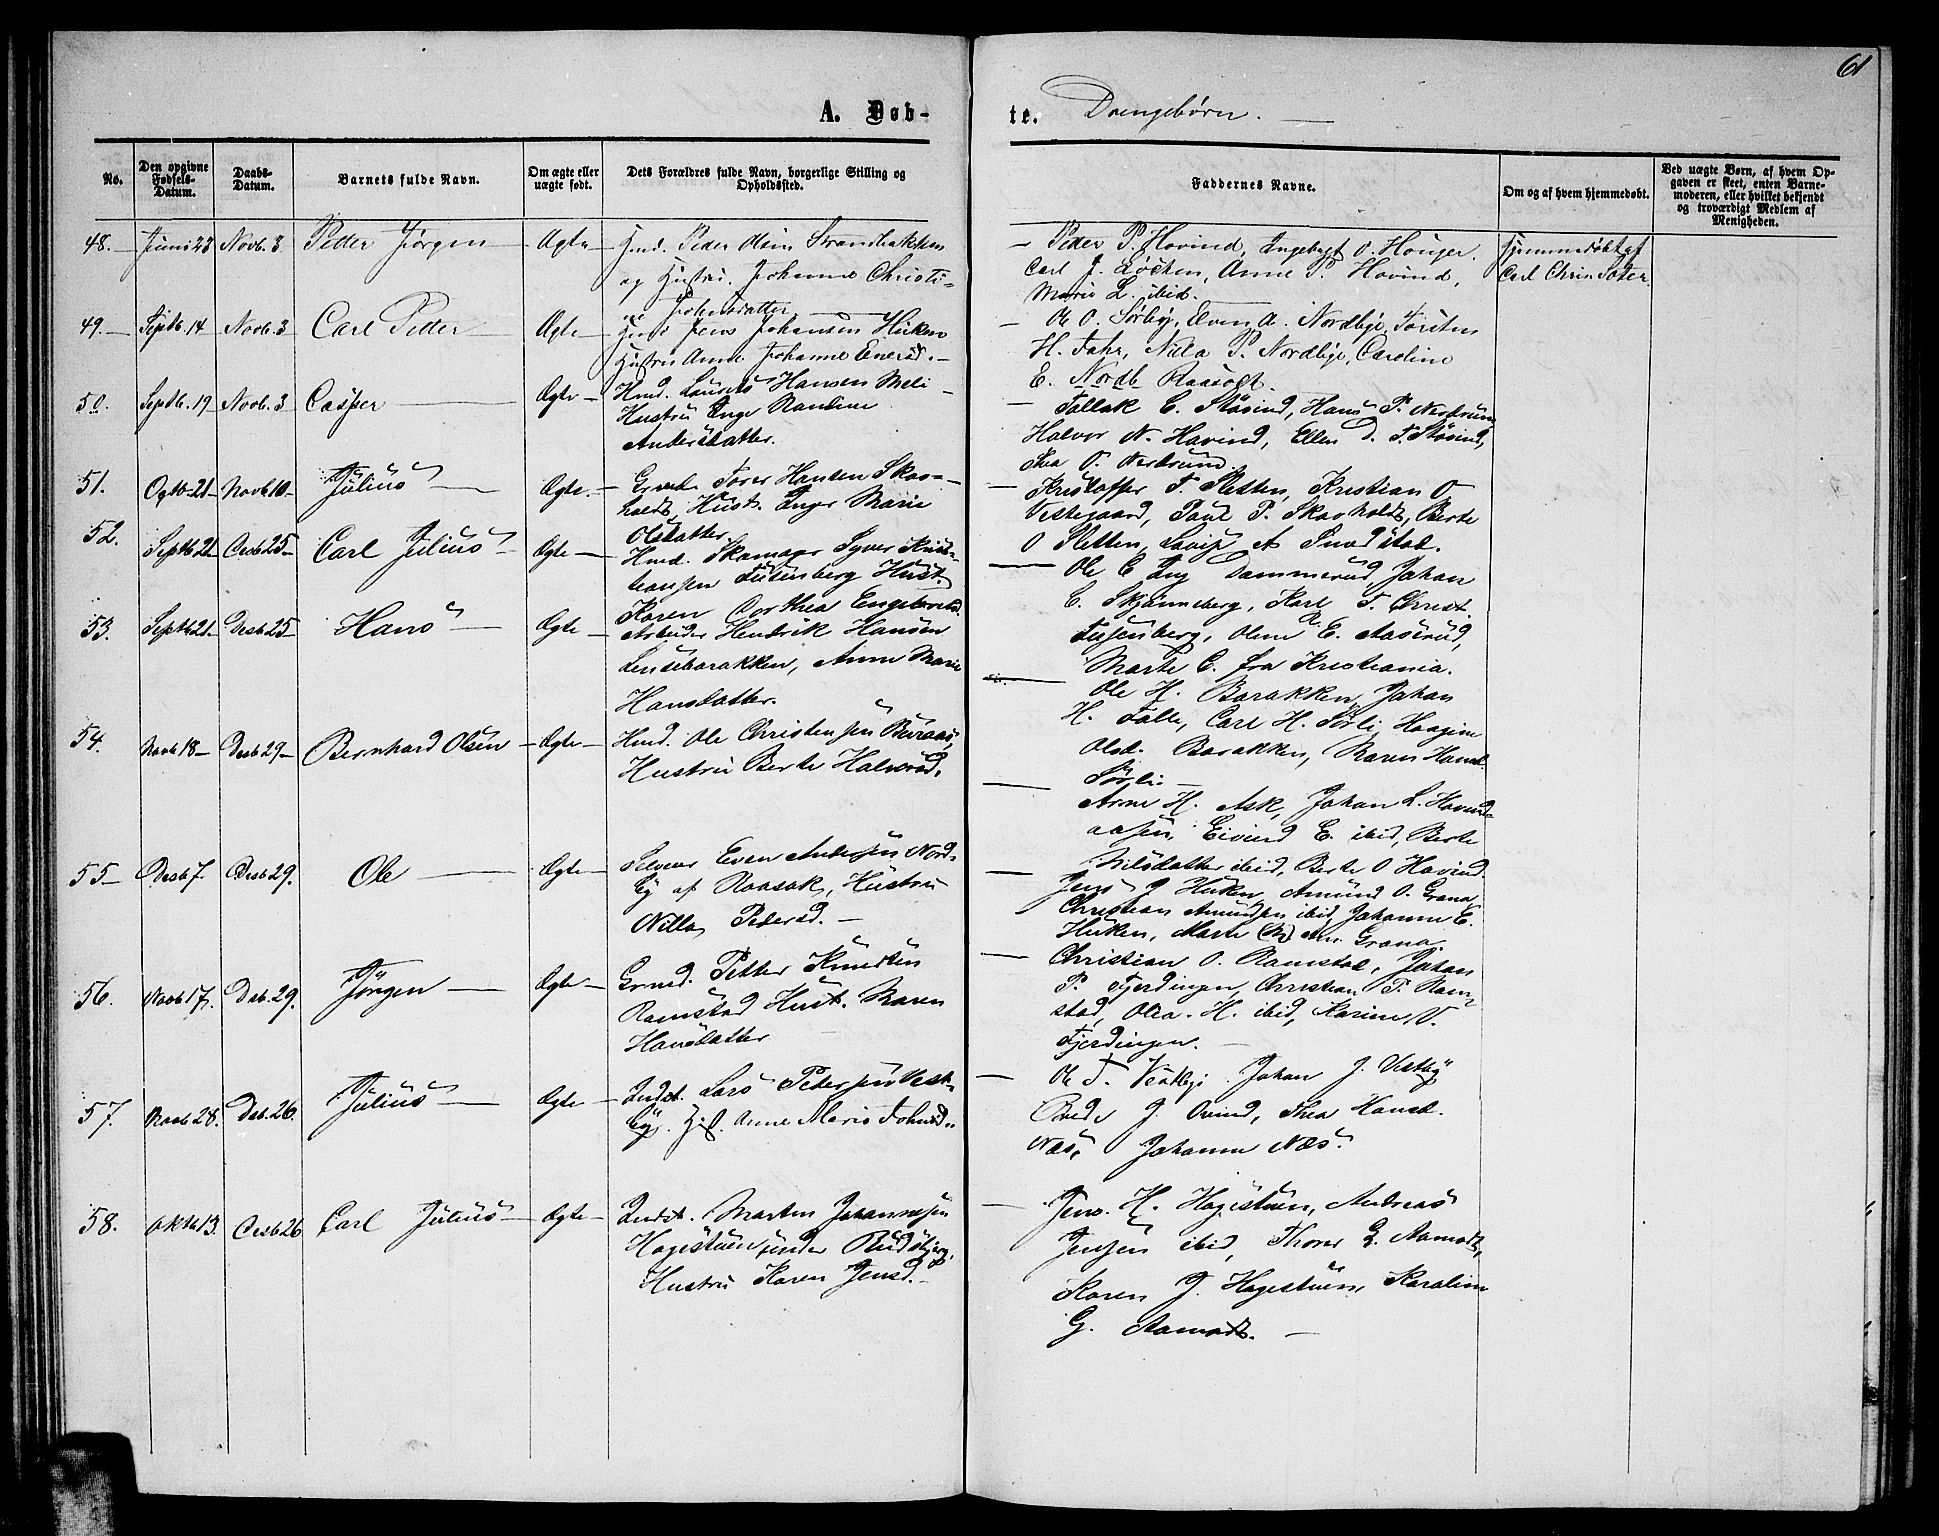 61
A. Døb-
te. Drengebørn.
No.
Den opgivne Fødsels-Datum.
Daabs-Datum.
Barnets fulde Navn.
Om ægte eller uægte født.
Dets Forældres fulde Navn, borgerlige Stilling og Opholdssted.
Faddernes Navne.
Om og af hvem hjemmedøbt.
Ved uægte Børn, af hvem Opgaven er skeet, enten Barnemoderen, eller hvilket bekjendt og troværdigt Medlem af Menigheden.
48. Juni 23 Novb. 3 Petter Jørgen Ægte Hmd. Peder Olsen Strandbakken
og Hustru. Johanne Christi-
ne Johnsdatter
Peder P. Hovind, Ingebrgt O. Houger.
Carl J. Løchen, Anne P. Hovind,
Marie L. ibid.
Hjemmedøbt af
Carl Chrin Sæter
49. Septb. 14 Novb. 3 Carl Petter Ægte Jens Johansen Huken
Hustru Anne Johanne Enersd.
Ole O. Sørby, Even A. Nordbye, Torsten
H. Fahr, Nilla P. Nordbye, Caroline
E. Nordb Raasogt.
50. Septb. 19 Novb. 3 Casper Ægte Hmd. Laurits Hansen Meli
Hustru Inge Randine
Andersdatter.
Tollak C. Støvind, Hans P. Nerdrum
Halvor N. Havind, Ellen D. T. Støvind,
Thea O. Nerdrum.
51. Ogtb 21 Novb 10 Julius Ægte. Grmd. Torer Hansen Skov-
holdt, Hust. Inger Marie
Olsdatter
Kristoffer T. Sletten, Kristian O
Vestegaard, Paul P. Skovholdt, Berte
O Sletten, Lovise A Snodstad.
52. Septb 21 Desb 25 Carl Julius Ægte Hmd. Skomager Syver Krist-
iansen Tusenberg Hust.
Karen Dorthea Engebretsd.
Ole E Dammerud, Johan
C. Skjønneberg, Karl T. Christ.
Tusenberg, Olene E. Aaserud,
Marte C. fra Kristiania.
53. Septb 21 Desb 25 Hans Ægte Arbeider Hendrik Hansen
Lensebarakken, Anne Marie
Hansdatter.
Ole H. Barakken, Johan
H. Falle, Carl H. Sørli, Haagine
Olsd. Barakken, Karen Hansd.
Sørli
54. Novb 18 Desb 29 Bernhard Olsen Ægte Hmd. Ole Christensen
Hustru Berte Halvorsd.
Arne H. Ask, Johan L. Hovind-
aasen, Eivind E. ibid, Berte
Nilsdatter ibid, Berte O Hovind
55 Desb 7. Desb 29. Ole Ægte Selveier Even Andersen Nord-
by af Raasok, Hustru
Nilla Pedersd.
Jens J Huken, Amund O. Grana
Christian Amundsen ibid, Johanne E.
Huken, Marte Grana.
56. Novb 17. Desb. 29. Jørgen Ægte Grmd. Petter Knudsen
Ramstad Hust. Maren
Hansdatter
Christian O. Ramstad, Johan
P. Fjerdingen, Christian P. Ram-
stad, Olea. H. ibid, Karine V.
Fjerdingen.
57. Novb 28. Desb. 26. Julius Ægte Indst. Lars Petersen Vest-
by. Hust. Anne Marie Johnsd.
Ole T. Vestbye. Johan J. Vestby
Brede J. Ovind, Thea Hansd.
Næs, Johanne Næs.
58. Oktb 13. Desb 26 Carl Julius Ægte Indst. Marten Johannesen
Hagestuen under Rudsbjerg,
Hustru Karen Jensd.
Jens. H. Hagestuen, Andreas
Jensen ibid, Thorer G. Aamodt,
Karen J. Hagestuen, Karoline
G. Aamodt.